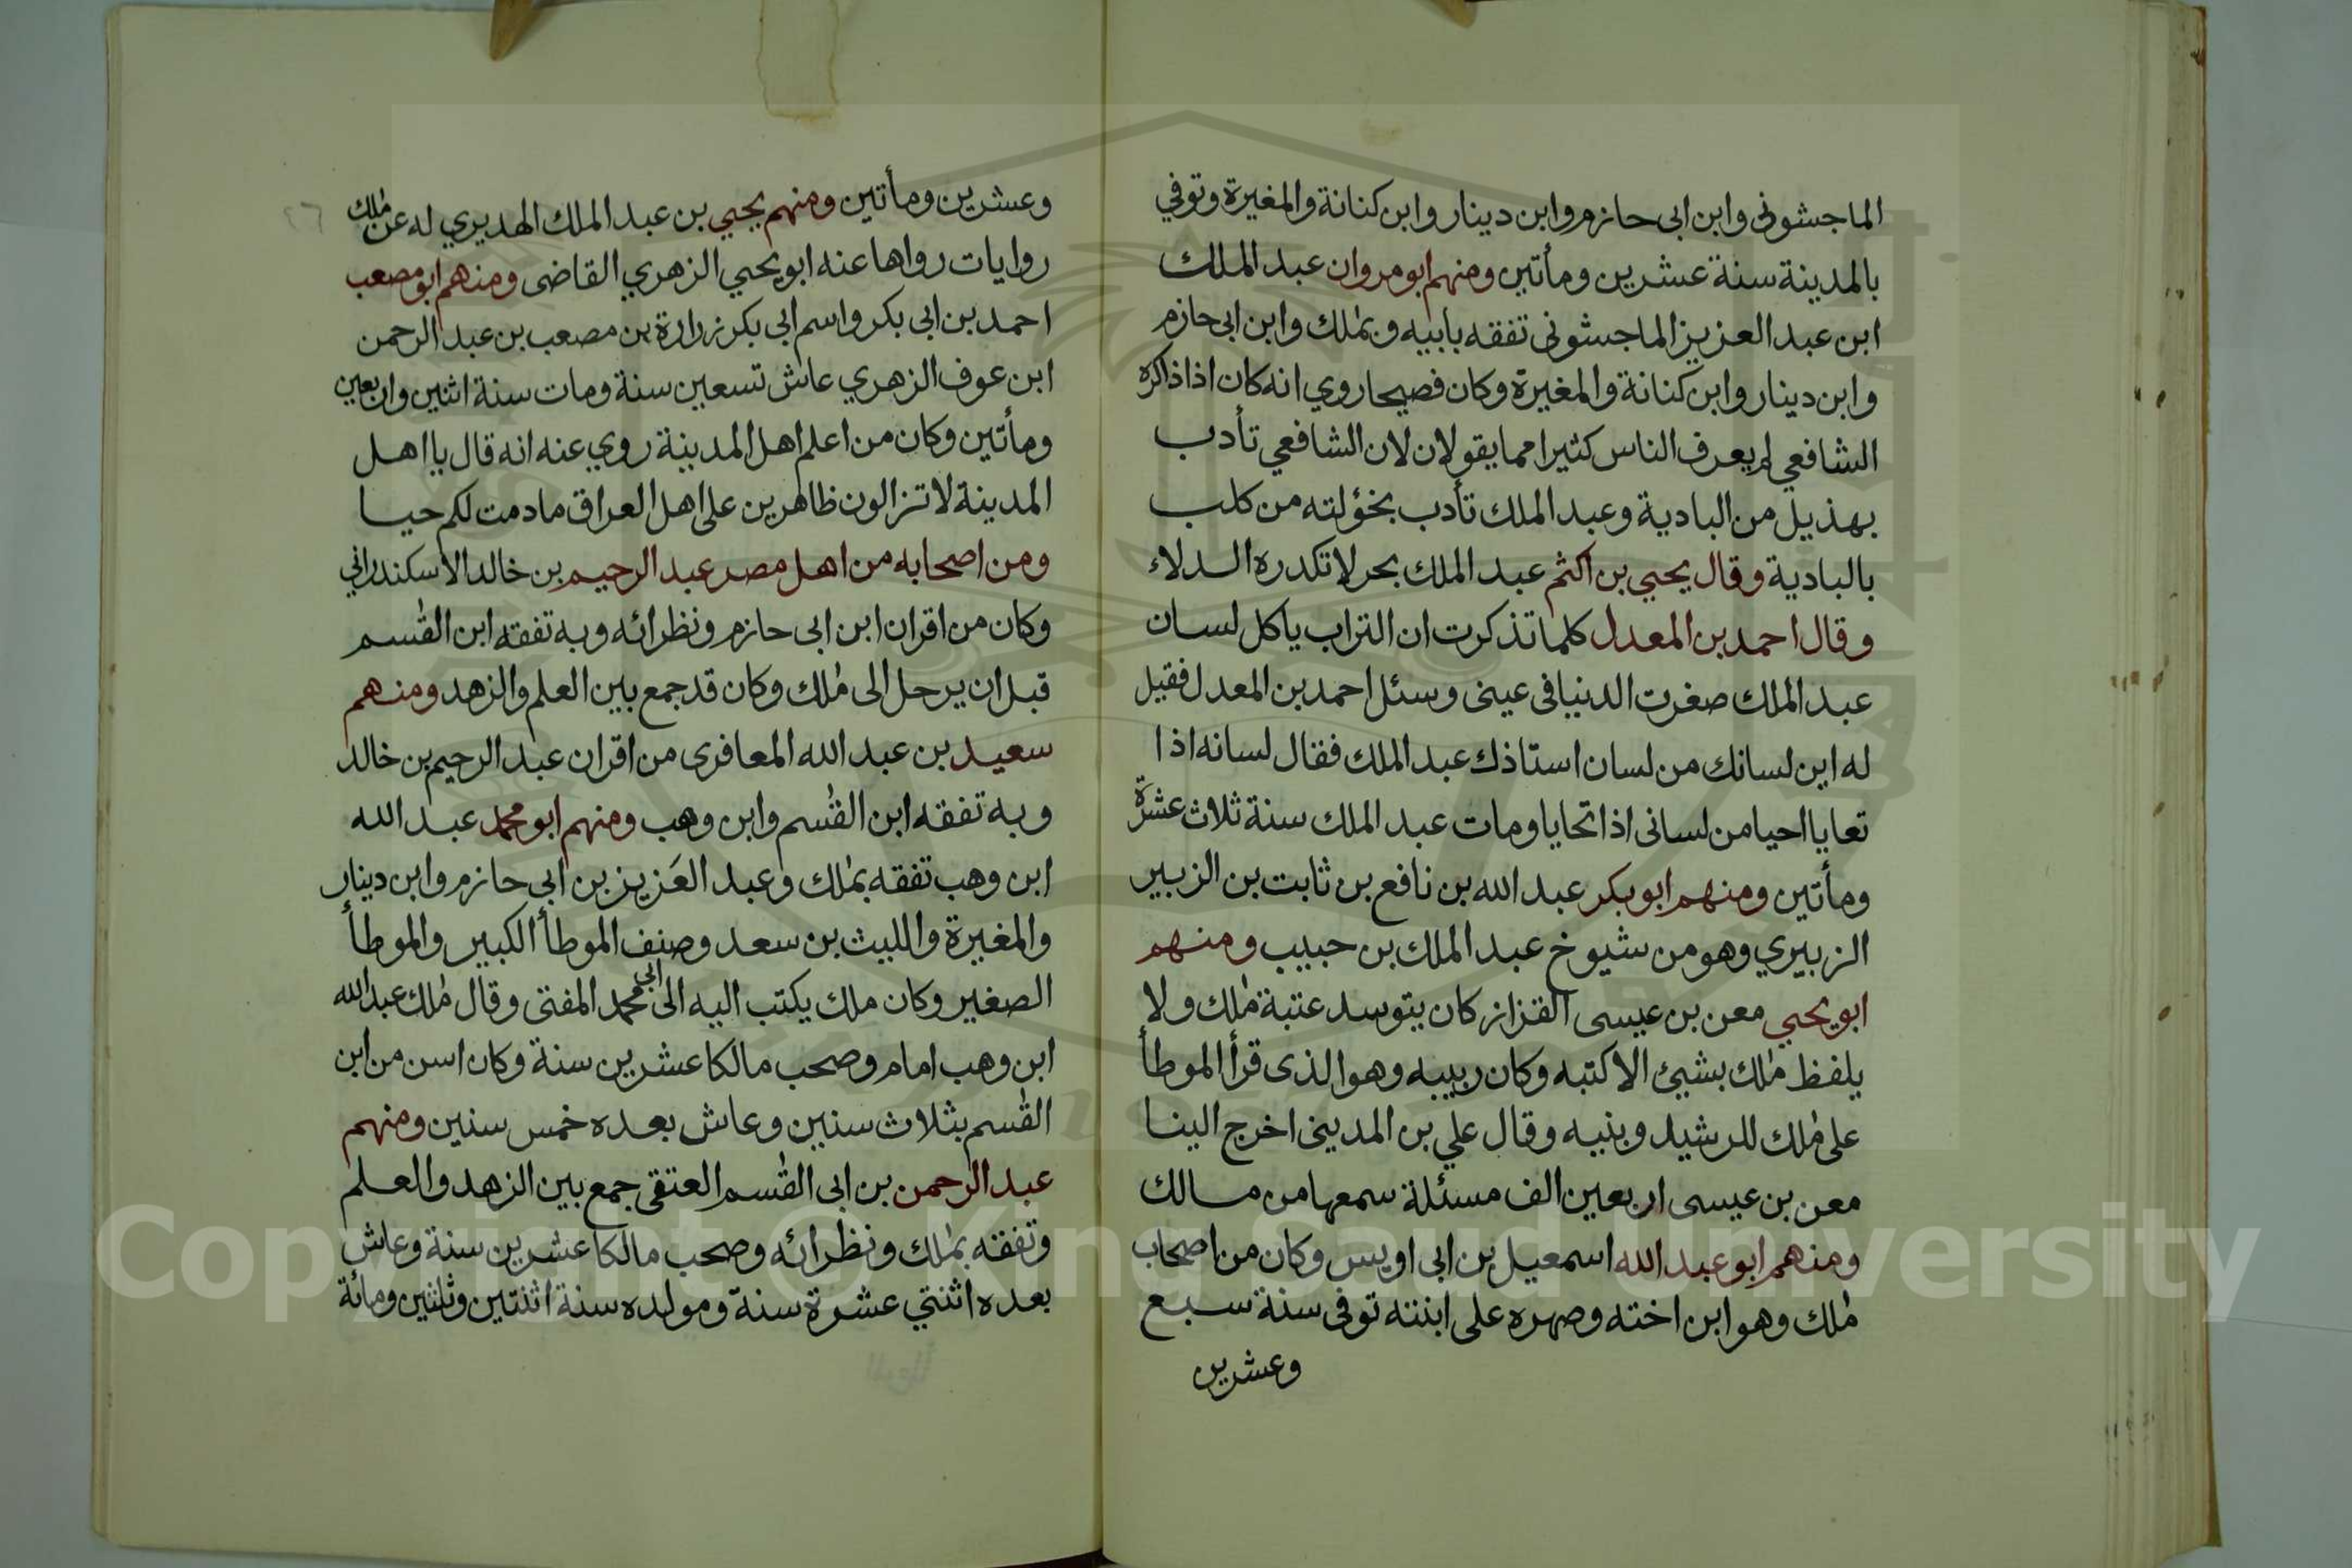 الماجشونى وابن ابى حازم وابن دينار وابن كنانة والمغيرة وتوفي
بالمدينة سنة عشرين ومأتين ومنهم ابو مروان عبد الملك
ابن عبد العزيز الماجشونى تفقه بابيه وبملك وابن ابى حازم
وابن دينار وابن كنانة والمغيرة وكان فصيحا روي انه كان اذا ذاكره
الشافعي لم يعرف الناس كثيرا مما يقولان لان الشافعي تأدب
بهذيل من البادية وعبد الملك تأدب بخؤلته من كلب
بالبادية وقال يحيي بن اكثم عبد الملك بحر لا تكدره الدلاء
وقال احمد بن المعدل كلما تذكرت ان التراب ياكل لسان
عبد الملك صغرت الدنيا فى عينى وسئل احمد بن المعدل فقيل
له اين لسانك من لسان استاذك عبد الملك فقال لسانه اذا
تعايا احيا من لسانى اذا تحايا ومات عبد الملك سنة ثلاث عشرة
ومأتين ومنهم ابو بكر عبد الله بن نافع بن ثابت بن الزبير
الزبيري وهو من شيوخ عبد الملك بن حبيب ومنهم
ابو يحيي معن بن عيسى القزاز كان يتوسد عتبة ملك ولا
يلفظ ملك بشيئ الا كتبه وكان ربيبه وهو الذى قرأ الموطأ
على ملك للرشيد وبنيه وقال علي بن المدينى اخرج الينا
معن بن عيسى اربعين الف مسئلة سمعها من مالك
ومنهم ابو عبد الله اسمعيل بن ابى اويس وكان من اصحاب
ملك وهو ابن اخته وصهره على ابنته توفى سنة سبع
وعشرين
وعشرين ومأتين ومنهم يحيي بن عبد الملك الهديري له عن ملك
روايات رواها عنه ابو يحيي الزهري القاضى ومنهم ابو مصعب
احمد بن ابى بكر واسم ابى بكر زرارة بن مصعب بن عبد الرحمن
ابن عوف الزهري عاش تسعين سنة ومات سنة اثنين واربعين
ومأتين وكان من اعلم اهل المدينة روي عنه انه قال يا اهل
المدينة لا تزالون ظاهرين على اهل العراق مادمت لكم حيا
ومن اصحابه من اهل مصر عبد الرحيم بن خالد الاسكندرانى
وكان من اقران ابن ابى حازم ونظرائه وبه تفقه ابن القسم
قبل ان يرحل الى ملك وكان قد جمع بين العلم والزهد ومنهم
سعيد بن عبد الله المعافرى من اقران عبد الرحيم بن خالد
وبه تفقه ابن القسم وابن وهب ومنهم ابو محمد عبد الله
ابن وهب تفقه بملك وعبد العزيز بن ابى حازم وابن دينار
والمغيرة والليث بن سعد وصنف الموطأ الكبير والموطأ
الصغير وكان ملك يكتب اليه الى ابى محمد المفتى وقال ملك عبد الله
ابن وهب امام وصحب مالكا عشرين سنة وكان اسن من ابن
القسم بثلاث سنين وعاش بعده خمس سنين ومنهم
عبد الرحمن بن ابى القسم العتقى جمع بين الزهد والعلم
وتفقه بملك ونظرائه وصحب مالكا عشرين سنة وعاش
بعده اثنتي عشرة سنة ومولده سنة اثنتين وثلثين ومائة
٢٦
Copyright © King Saud University